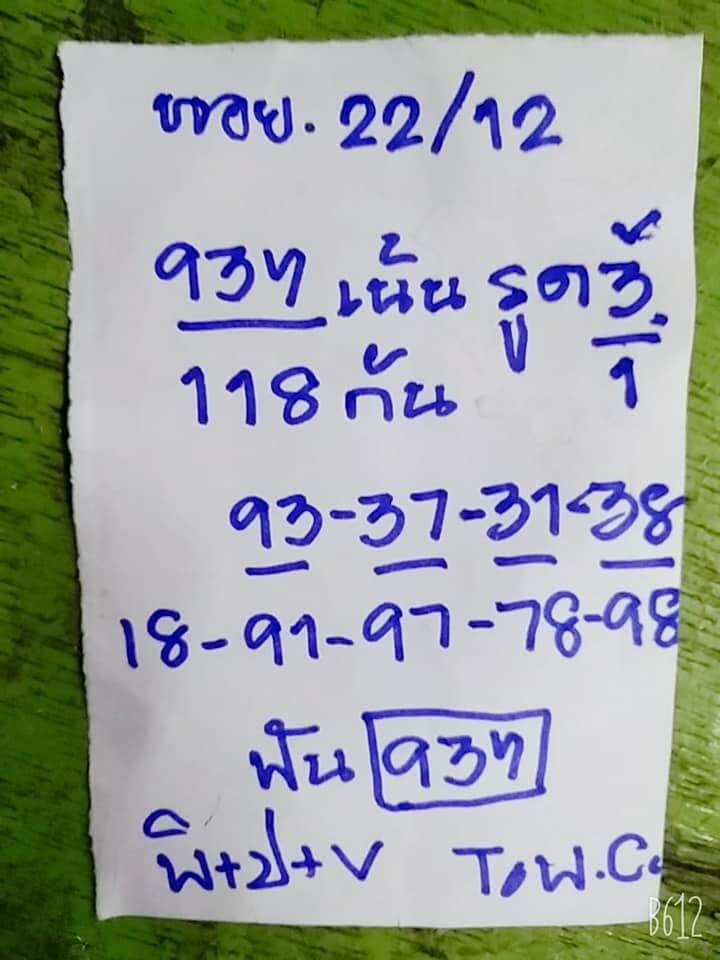 ฮานอย. 22/12
937 เน้น รูด 3.
118 กัน 1
93-37-31-38
18-91-97-78-98
ฟัน 937
พิ+ป+V T.พ.C.
B612